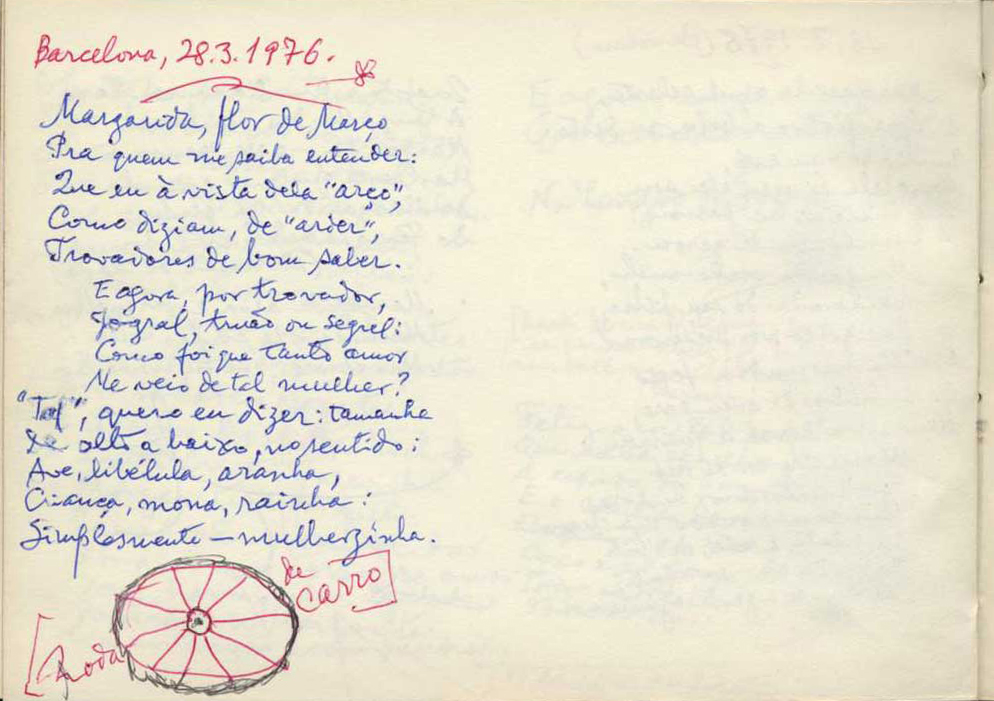 Barcelona, 28.3.1976.
Margarida, flor de Março
Pra quem me saiba entender:
Que eu à vista dela "arço",
Como diziam, de "arder",
Trovadores de bom saber.
E agora, por trovador,
Jogral, truão ou segrel:
Como foi que tanto amor
Me veio de tal mulher?
"Tal", quero eu dizer: tamanha
De alto a baixo, no sentido:
Ave, libélula, aranha,
Criança, mona, rainha:
Simplesmente — mulherzinha.
[Roda de carro]